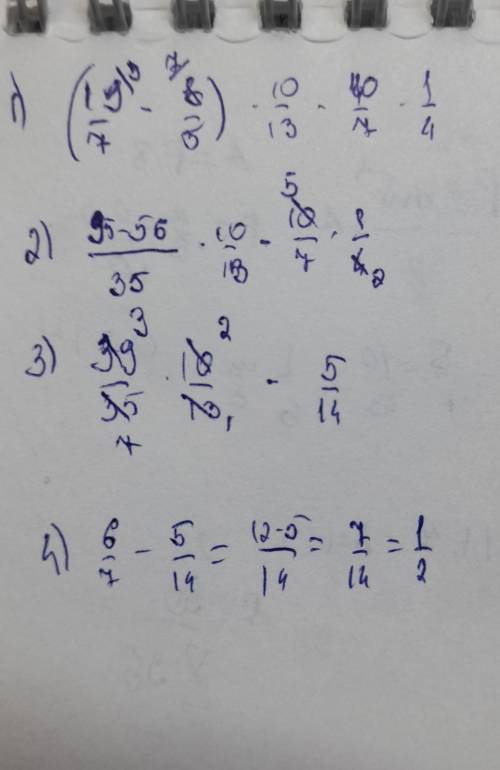 1) (19/7 - 8/5) · 10/13 - 10/7 · 1/4
2) 95-56/35 · 10/13 - 10/7 · 1/4 5 2
3) 39/35 · 10/13 - 5/14 3 7 2 1
4) 6/7 - 5/14 = 12-5/14 = 7/14 = 1/2